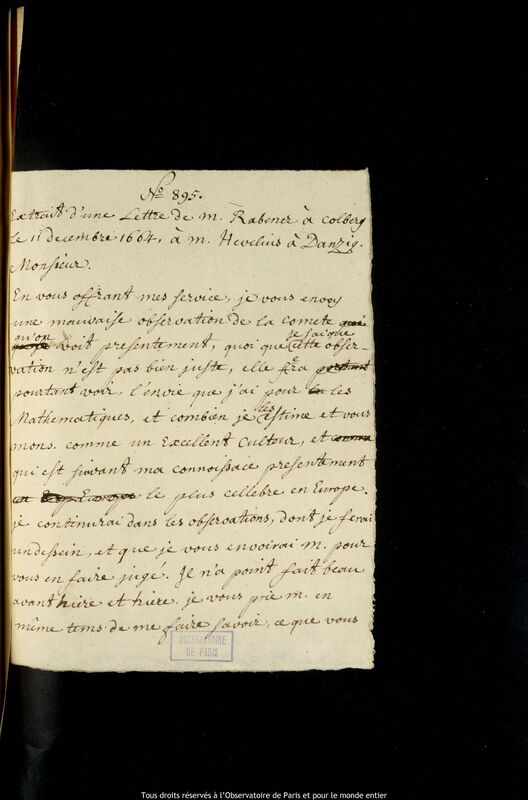 No 895.
Extrait d'une Lettre de m. Rabener à Colberg
le 11 decembre 1664, à m. Hevelius à Danzig.
Monsieur.
En vous offrant mes service, je vous envoy
une mauvaise observation de la comete
qu'on voit presentement, quoi que je sai que cette obser-
vation n'est pas bien juste, elle fera
pourtant voir, l'envie que j'ai pour les
Mathematiques, et combien je les estime et vous
mons. comme un Excellent Culteur, et
qui est suivant ma connoissace presentement
le plus cellebre en Europe.
je continurai dans les observations, dont je ferai
un dessein, et que je vous envoirai m. pour
vous en faire jugé. Il n'a point fait beau
avant hiere et hiere. je vous prie m. en
même tems de me faire savoir, ce que vous
OBSERVATOIRE
DE PARIS
Tous droits réservés à l'Observatoire de Paris et pour le monde entier